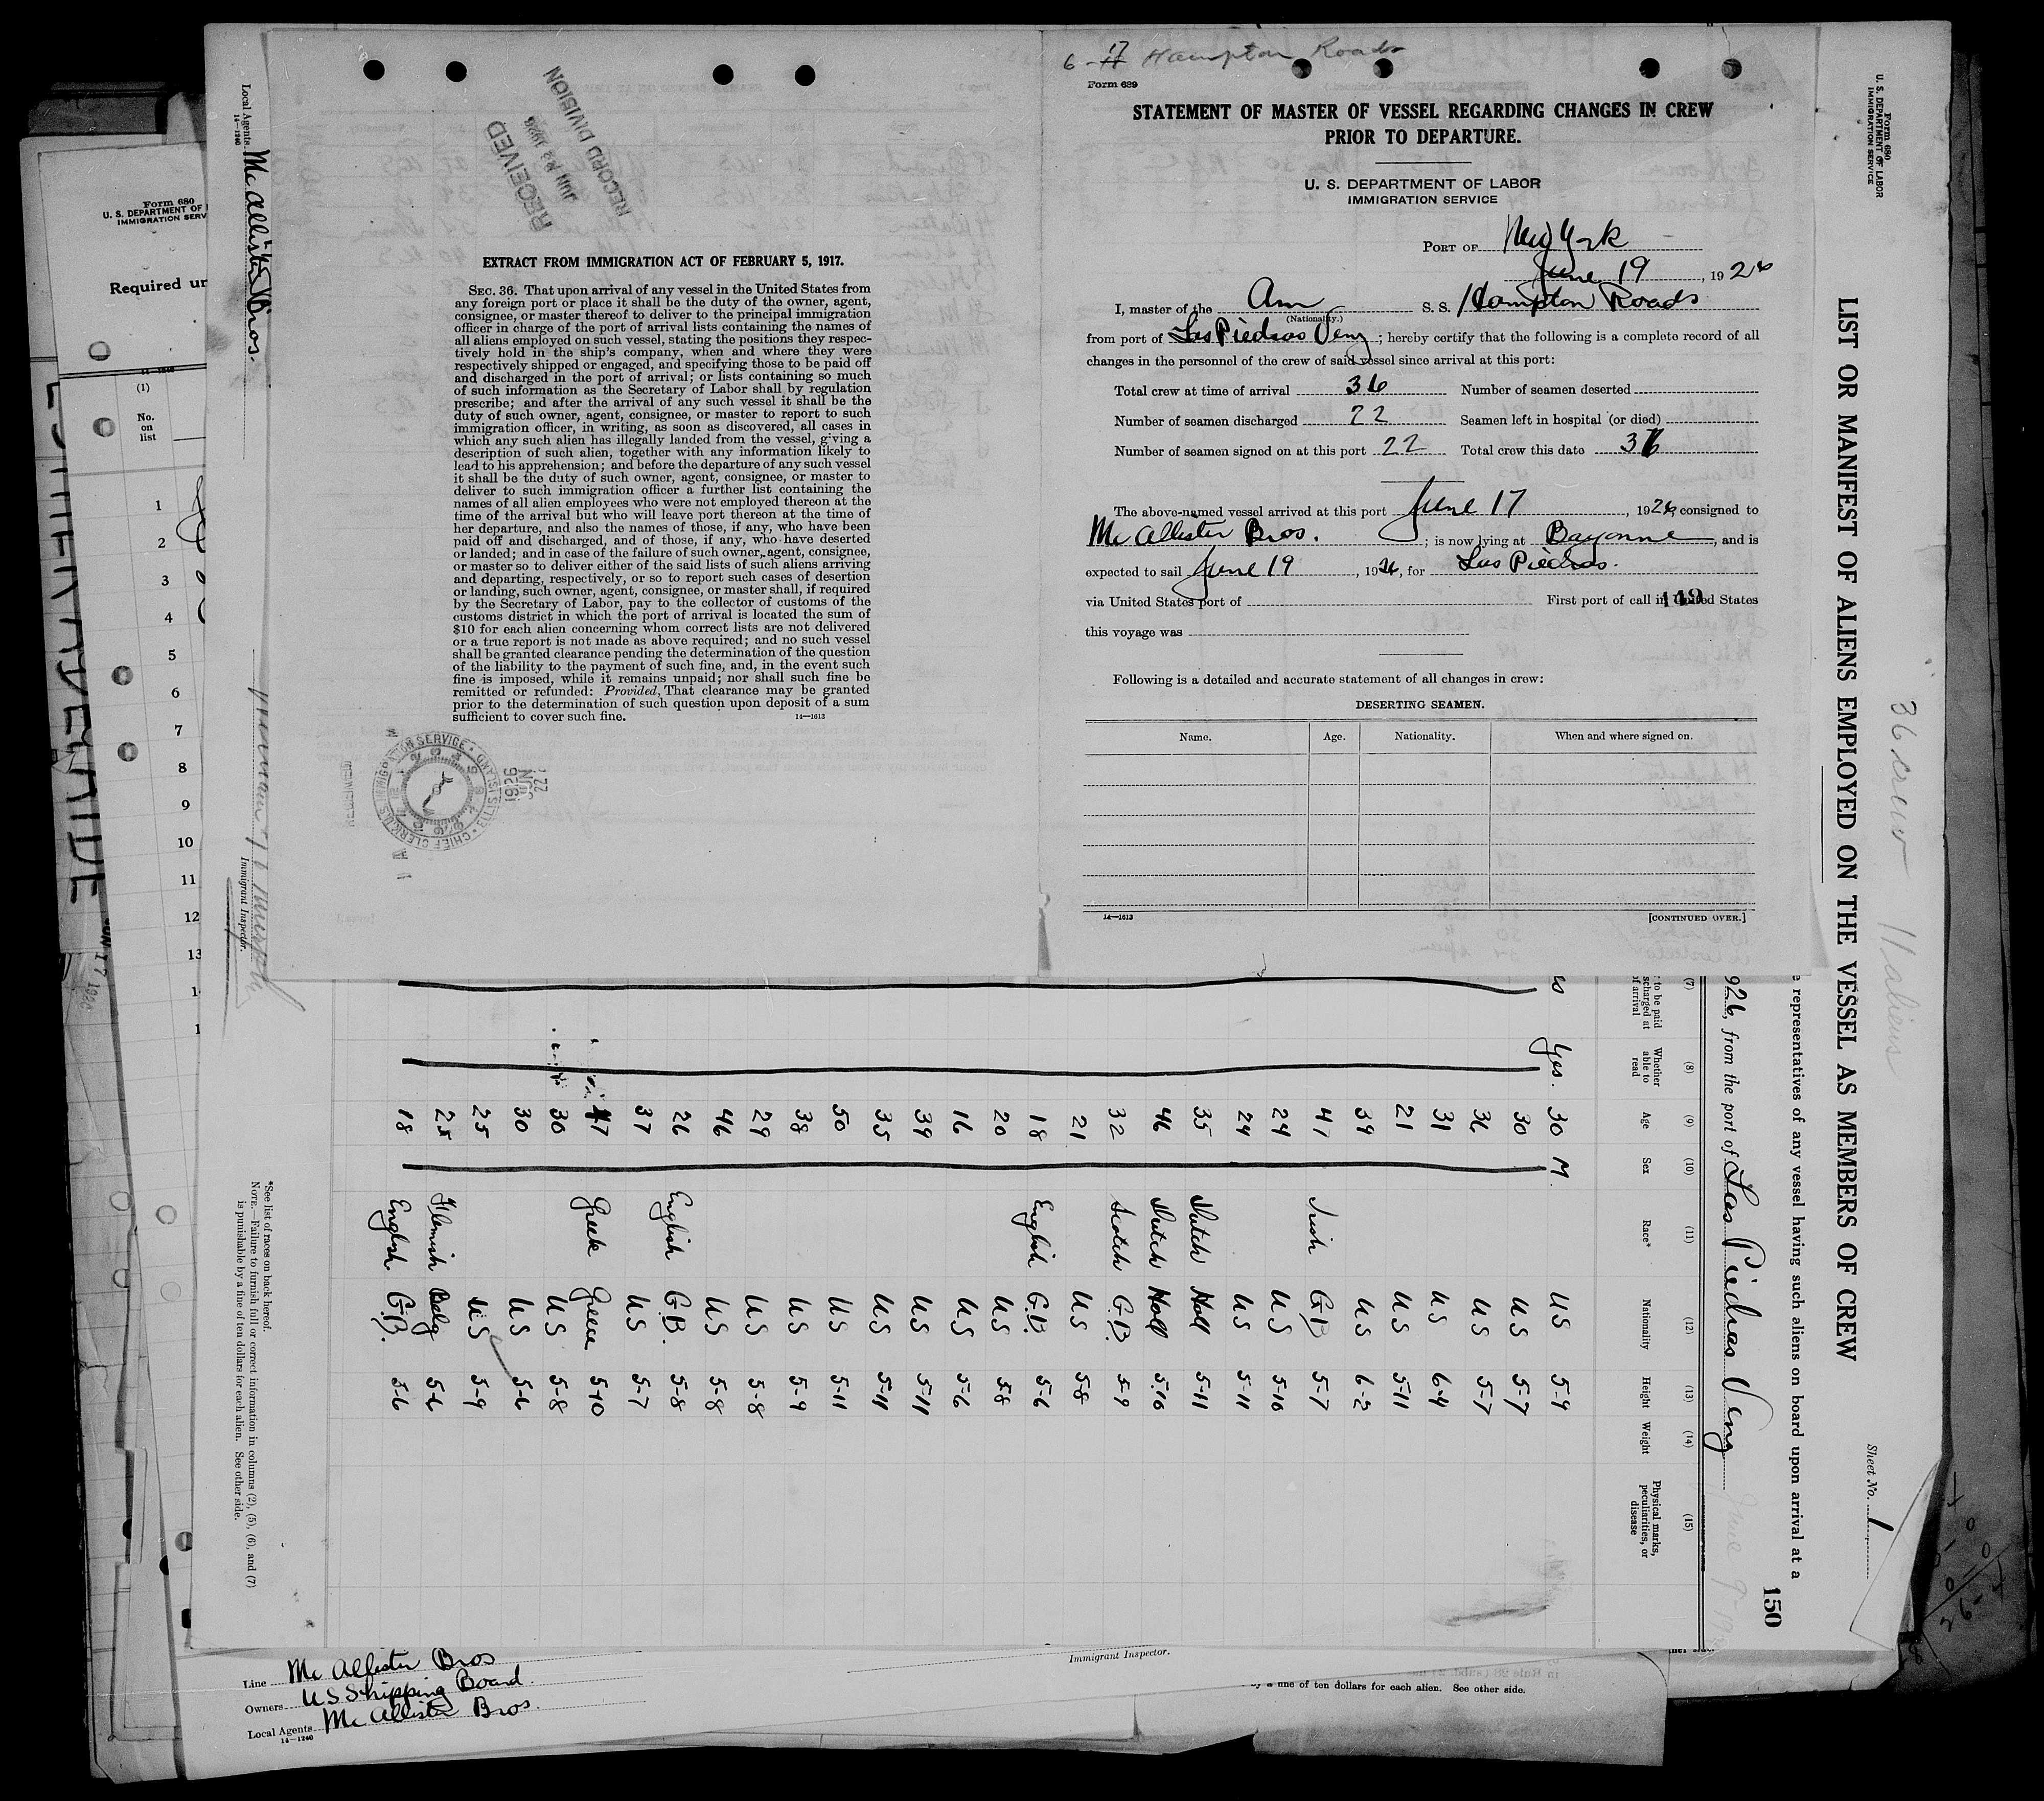 6-17 Hampton Roads
Form 689
STATEMENT OF MASTER OF VESSEL REGARDING CHANGES IN CREW
PRIOR TO DEPARTURE.
U. S. DEPARTMENT OF LABOR
IMMIGRATION SERVICE
PORT OF New York
June 19, 1926
I, master of the Am S. S. Hampton Roads
(Nationality.)
from port of Las Piedras Venz; hereby certify that the following is a complete record of all
changes in the personnel of the crew of said vessel since arrival at this port:
Total crew at time of arrival 36 Number of seamen deserted
Number of seamen discharged 22 Seamen left in hospital (or died)
Number of seamen signed on at this port 22 Total crew this date 36
The above-named vessel arrived at this port June 17, 1926, consigned to
McAllister Bros.; is now lying at Bayonne, and is
expected to sail June 19, 1926, for Las Piedras.
via United States port of First port of call in United States
149
this voyage was
Following is a detailed and accurate statement of all changes in crew:
DESERTING SEAMEN.
Name. Age. Nationality. When and where signed on.
14—1613 [CONTINUED OVER.]
RECEIVED
JUN 22 1926
RECORD DIVISION
EXTRACT FROM IMMIGRATION ACT OF FEBRUARY 5, 1917.
SEC. 36. That upon arrival of any vessel in the United States from
any foreign port or place it shall be the duty of the owner, agent,
consignee, or master thereof to deliver to the principal immigration
officer in charge of the port of arrival lists containing the names of
all aliens employed on such vessel, stating the positions they respec-
tively hold in the ship's company, when and where they were
respectively shipped or engaged, and specifying those to be paid off
and discharged in the port of arrival; or lists containing so much
of such information as the Secretary of Labor shall by regulation
prescribe; and after the arrival of any such vessel it shall be the
duty of such owner, agent, consignee, or master to report to such
immigration officer, in writing, as soon as discovered, all cases in
which any such alien has illegally landed from the vessel, giving a
description of such alien, together with any information likely to
lead to his apprehension; and before the departure of any such vessel
it shall be the duty of such owner, agent, consignee, or master to
deliver to such immigration officer a further list containing the
names of all alien employees who were not employed thereon at the
time of the arrival but who will leave port thereon at the time of
her departure, and also the names of those, if any, who have been
paid off and discharged, and of those, if any, who have deserted
or landed; and in case of the failure of such owner, agent, consignee,
or master so to deliver either of the said lists of such aliens arriving
and departing, respectively, or so to report such cases of desertion
or landing, such owner, agent, consignee, or master shall, if required
by the Secretary of Labor, pay to the collector of customs of the
customs district in which the port of arrival is located the sum of
$10 for each alien concerning whom correct lists are not delivered
or a true report is not made as above required; and no such vessel
shall be granted clearance pending the determination of the question
of the liability to the payment of such fine, and, in the event such
fine is imposed, while it remains unpaid; nor shall such fine be
remitted or refunded: Provided, That clearance may be granted
prior to the determination of such question upon deposit of a sum
sufficient to cover such fine. 14—1613
CHIEF CLERK U.S. IMMIGRATION SERVICE ELLIS ISLAND
22 JUN 1926
RECEIVED
Form 680
U. S. DEPARTMENT OF LABOR
IMMIGRATION SERVICE
Sheet No. 1
LIST OR MANIFEST OF ALIENS EMPLOYED ON THE VESSEL AS MEMBERS OF CREW
36 crew 11 aliens
representatives of any vessel having such aliens on board upon arrival at a
150
926, from the port of Las Piedras Venz
(7) (8) (9) (10) (11) (12) (13) (14) (15)
to be paid
of arrival
Whether able to read
Age Sex Race* Nationality Height Weight
Physical marks, peculiarities, or disease
Yes. 30 M US 5-9
30 US 5-7
36 US 5-7
31 US 6-4
21 US 5-11
39 US 6-2
47 Irish G.B 5-7
24 US 5-10
24 US 5-11
35 Dutch Holl 5-11
46 Dutch Holl 5-10
32 Scotch G.B. 5-9
21 US 5-8
18 English G.B. 5-6
20 US 5-8
16 US 5-6
39 US 5-11
35 US 5-11
50 US 5-11
38 US 5-9
29 US 5-8
46 US 5-8
26 English G.B. 5-8
37 US 5-7
47 Greek Greece 5-10
30 US 5-8
30 US 5-6
25 US 5-9
25 Flemish Belg 5-6
18 English G.B. 5-6
*See list of races on back hereof.
NOTE.—Failure to furnish full or correct information in columns (2), (5), (6), and (7)
is punishable by a fine of ten dollars for each alien. See other side.
Immigrant Inspector.
Local Agents McAllister Bros.
14—1240
Form 680
U. S. DEPARTMENT OF
IMMIGRATION SERV
Required un
(1)
No. on list
1
2
3
4
5
6
7
8
9
10
11
12
13
JUN 17 1926
Line McAllister Bros
Owners US Shipping Board.
Local Agents McAllister Bros.
14—1240
Immigrant Inspector.
ine of ten dollars for each alien. See other side.